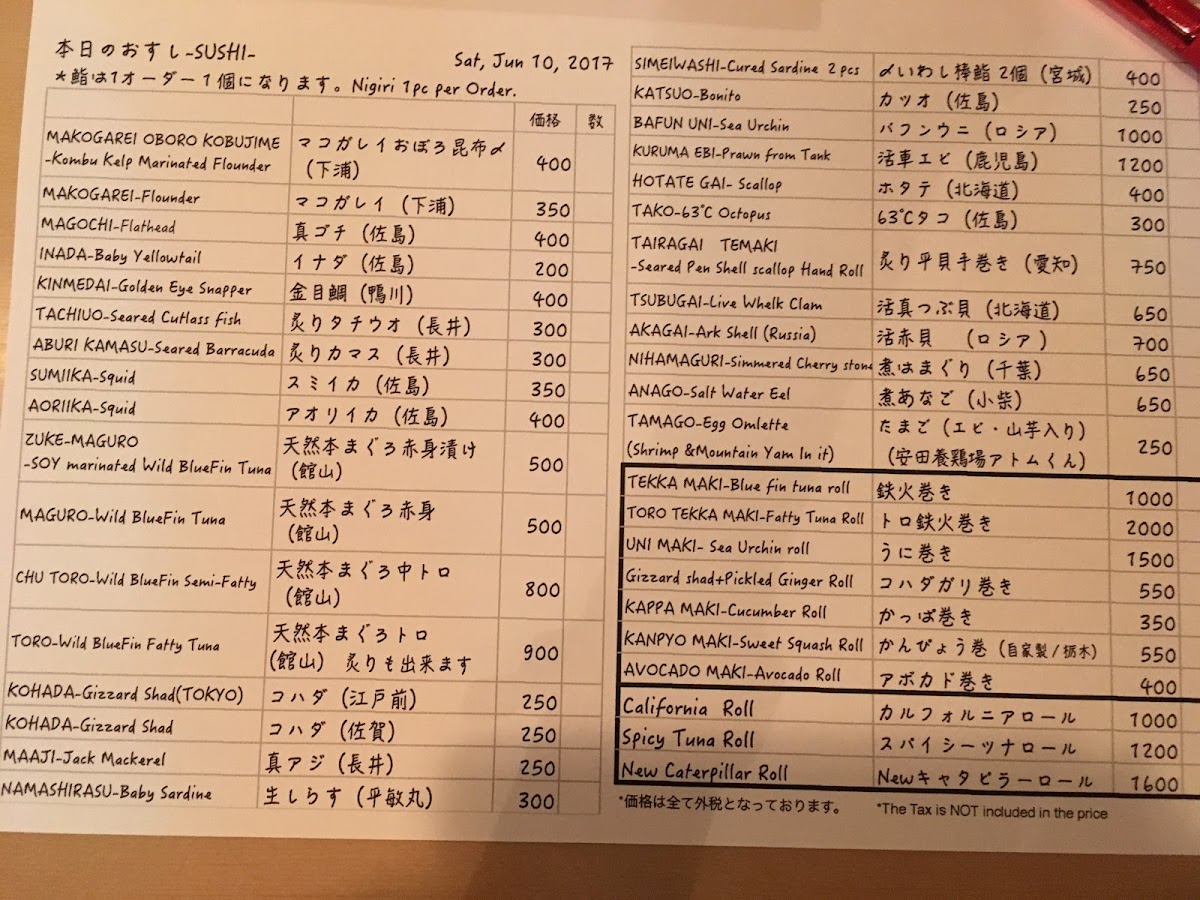 本日のおすし-SUSHI- Sat, Jun 10, 2017
*鮨は1オーダー1個になります。Nigiri 1pc per Order.
価格 数
MAKOGAREI OBORO KOBUJIME マコガレイおぼろ昆布〆
-Kombu Kelp Marinated Flounder (下浦) 400
MAKOGAREI-Flounder マコガレイ (下浦) 350
MAGOCHI-Flathead 真ゴチ (佐島) 400
INADA-Baby Yellowtail イナダ (佐島) 200
KINMEDAI-Golden Eye Snapper 金目鯛 (鴨川) 400
TACHIUO-Seared Cutlass fish 炙りタチウオ (長井) 300
ABURI KAMASU-Seared Barracuda 炙りカマス (長井) 300
SUMIIKA-Squid スミイカ (佐島) 350
AORIIKA-Squid アオリイカ (佐島) 400
ZUKE-MAGURO 天然本まぐろ赤身漬け
-SOY marinated Wild BlueFin Tuna (館山) 500
MAGURO-Wild BlueFin Tuna 天然本まぐろ赤身
(館山) 500
CHU TORO-Wild BlueFin Semi-Fatty 天然本まぐろ中トロ
(館山) 800
TORO-Wild BlueFin Fatty Tuna 天然本まぐろトロ
(館山) 炙りも出来ます 900
KOHADA-Gizzard Shad(TOKYO) コハダ (江戸前) 250
KOHADA-Gizzard Shad コハダ (佐賀) 250
MAAJI-Jack Mackerel 真アジ (長井) 250
NAMASHIRASU-Baby Sardine 生しらす (平敏丸) 300
SIMEIWASHI-Cured Sardine 2pcs 〆いわし棒鮨 2個 (宮城) 400
KATSUO-Bonito カツオ (佐島) 250
BAFUN UNI-Sea Urchin バフンウニ (ロシア) 1000
KURUMA EBI-Prawn from Tank 活車エビ (鹿児島) 1200
HOTATE GAI- Scallop ホタテ (北海道) 400
TAKO-63℃ Octopus 63℃タコ (佐島) 300
TAIRAGAI TEMAKI
-Seared Pen Shell scallop Hand Roll 炙り平貝手巻き (愛知) 750
TSUBUGAI-Live Whelk Clam 活真つぶ貝 (北海道) 650
AKAGAI-Ark Shell (Russia) 活赤貝 (ロシア) 700
NIHAMAGURI-Simmered Cherry stone 煮はまぐり (千葉) 650
ANAGO-Salt Water Eel 煮あなご (小柴) 650
TAMAGO-Egg Omlette たまご (エビ・山芋入り)
(Shrimp &Mountain Yam In it) (安田養鶏場アトムくん) 250
TEKKA MAKI-Blue fin tuna roll 鉄火巻き 1000
TORO TEKKA MAKI-Fatty Tuna Roll トロ鉄火巻き 2000
UNI MAKI- Sea Urchin roll うに巻き 1500
Gizzard shad+Pickled Ginger Roll コハダガリ巻き 550
KAPPA MAKI-Cucumber Roll かっぱ巻き 350
KANPYO MAKI-Sweet Squash Roll かんぴょう巻 (自家製/栃木) 550
AVOCADO MAKI-Avocado Roll アボカド巻き 400
California Roll カルフォルニアロール 1000
Spicy Tuna Roll スパイシーツナロール 1200
New Caterpillar Roll Newキャタピラーロール 1600
*価格は全て外税となっております。 *The Tax is NOT included in the price